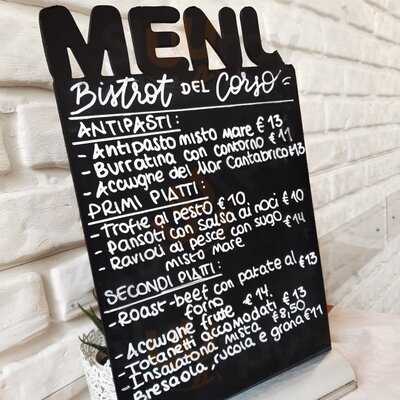 MENU
Bistrot DEL Corso
ANTIPASTI:
- Antipasto misto mare €13
- Burratina con contorno €11
- Acciughe del Mar Cantabrico €13
PRIMI PIATTI:
- Trofie al pesto €10
- Pansoti con salsa ai noci €10
- Ravioli di pesce con sugo €14
misto mare
SECONDI PIATTI:
- Roast-beef con patate al €13
forno
- Acciughe frute €14
- Totanetti accomodati €13
- Ensalatona mista €8,50
Bresaola, rucola e grana €11